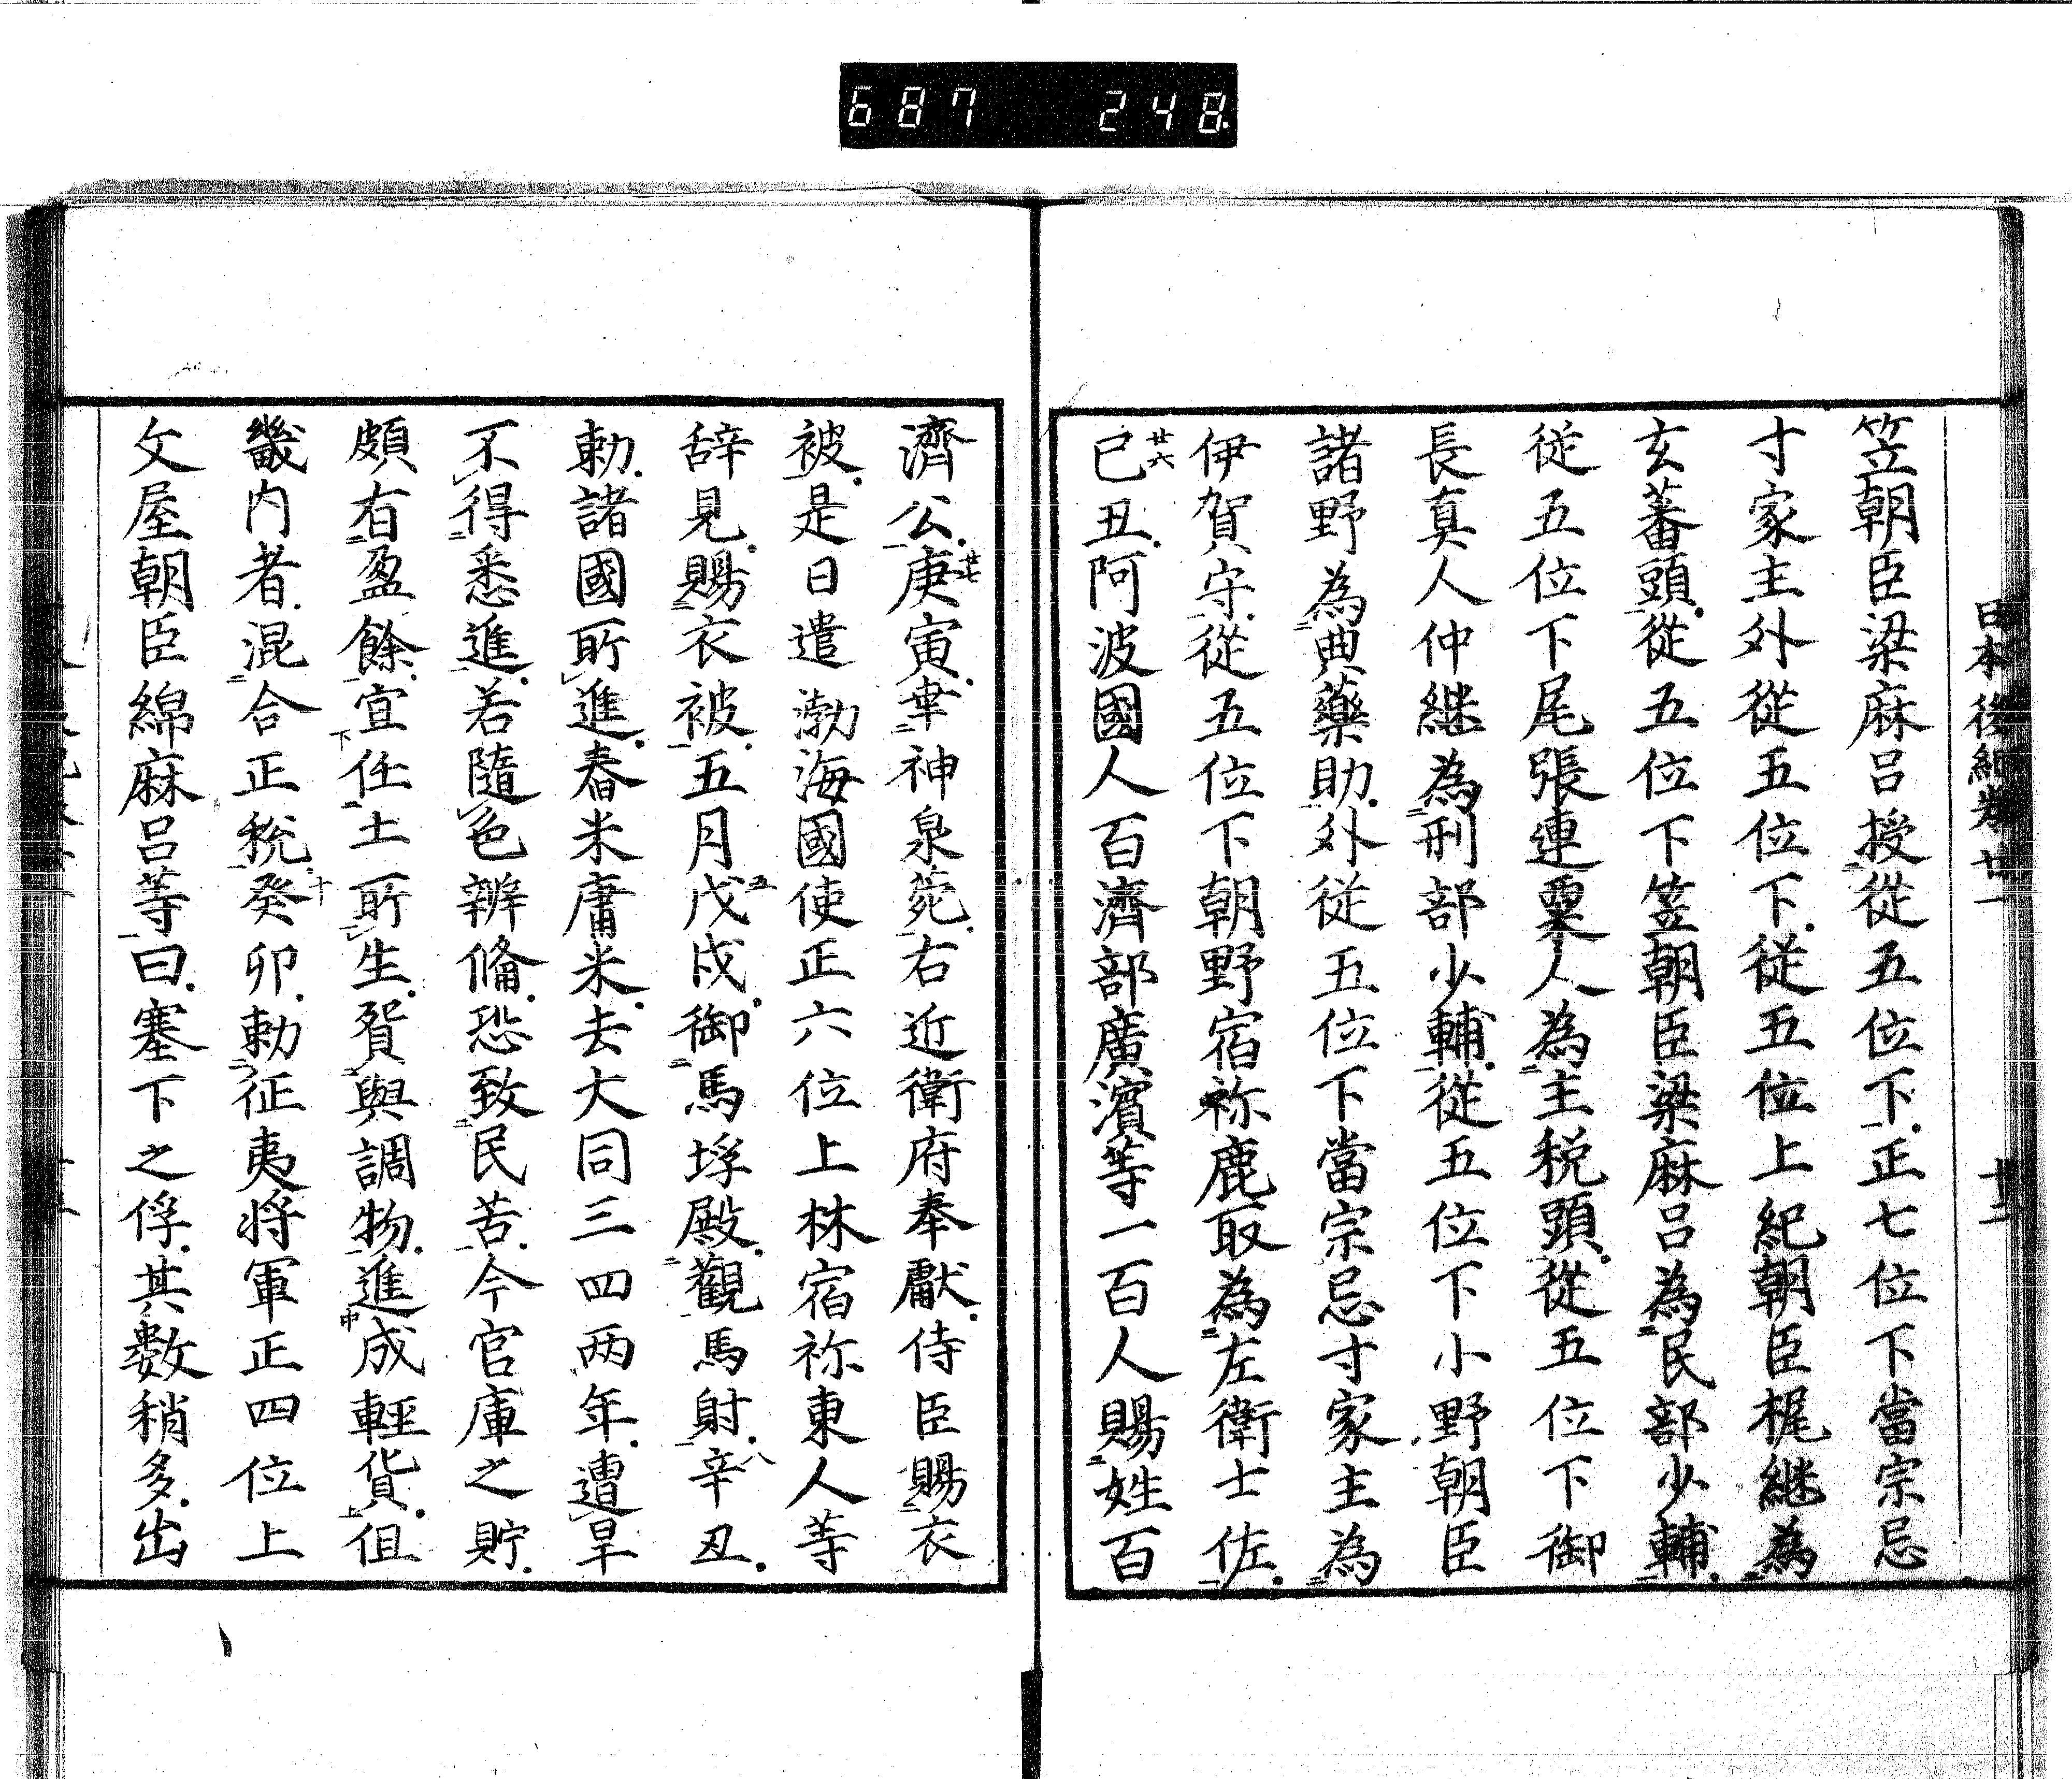 687 248
日本後紀卷廿一 十二
笠朝臣梁麻呂授從五位下正七位下當宗忌
寸家主外從五位下從五位上紀朝臣梶継為
玄蕃頭從五位下笠朝臣梁麻呂為民部少輔
從五位下尾張連粟人為主税頭從五位下御
長真人仲継為刑部少輔從五位下小野朝臣
諸野為典藥助外從五位下當宗忌寸家主為
伊賀守從五位下朝野宿祢鹿取為左衛士佐
己丑阿波國人百濟部廣濱等一百人賜姓百
廿六
濟公庚寅幸神泉苑右近衛府奉獻侍臣賜衣
廿七
被是日遣渤海國使正六位上林宿祢東人等
辞見賜衣被五月戊戌御馬埓殿觀馬射辛丑
五 八
勅諸國所進舂米庸米去大同三四两年遭旱
不得悉進若隨色辨俻恐致民苦今官庫之貯
頗有盈餘宜任土所生貿與調物進成輕貨但
畿内者混合正税癸卯勅征夷将軍正四位上
十
文屋朝臣綿麻呂等曰塞下之俘其數稍多出